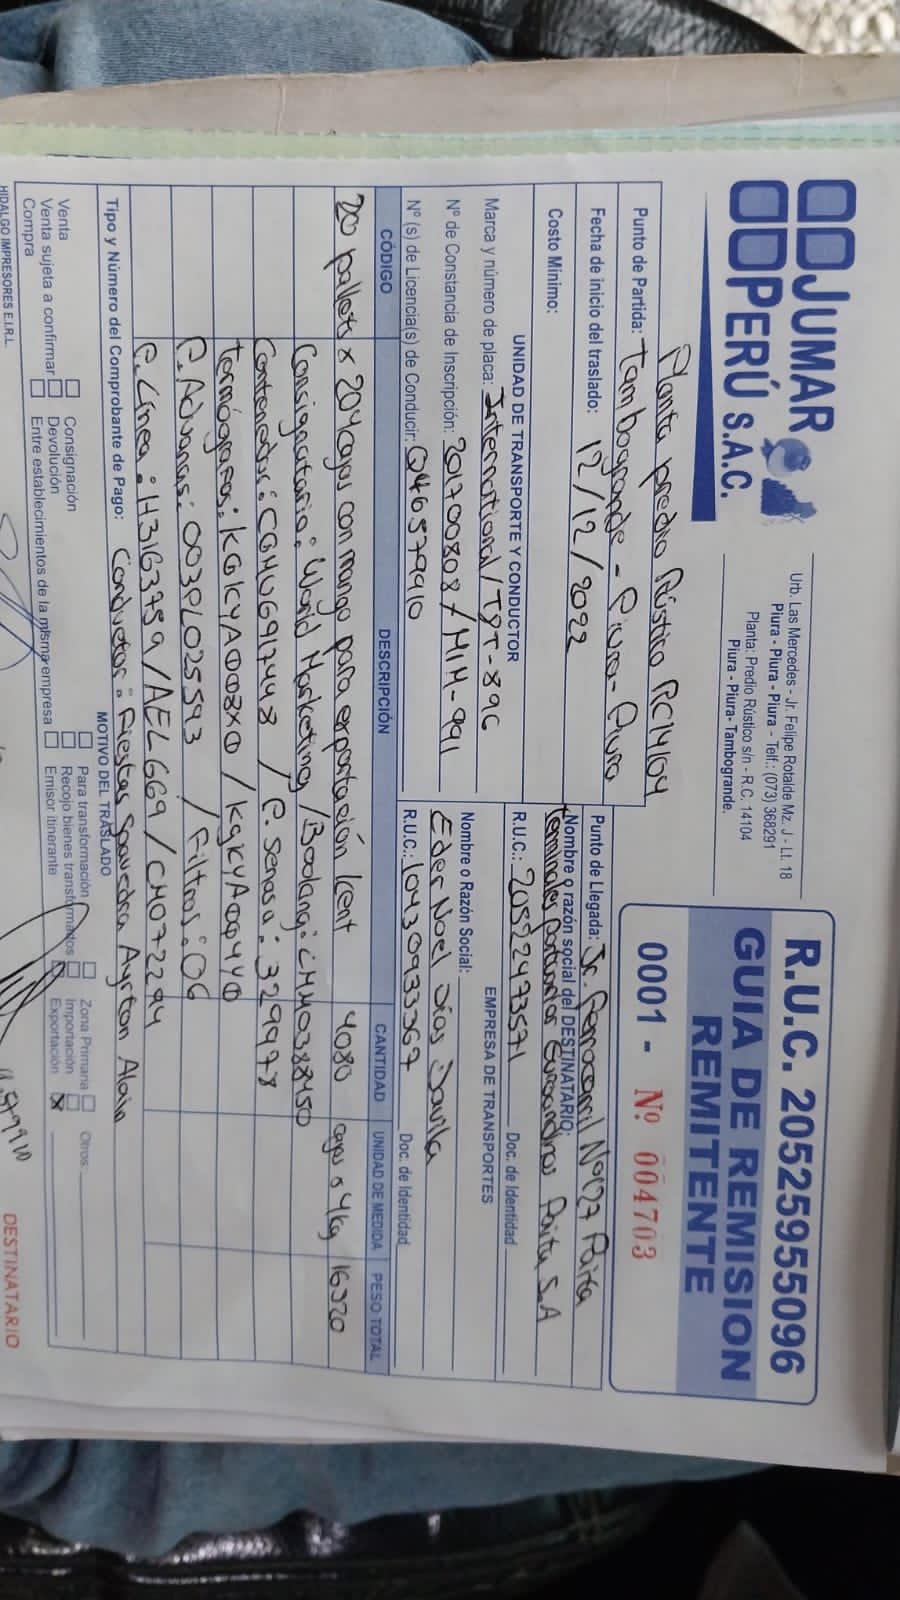 JUMAR
PERÚ S.A.C.
Urb. Las Mercedes - Jr. Felipe Rotalde Mz. J - Lt. 18
Piura - Piura - Piura - Telf.: (073) 368291
Planta: Predio Rústico s/n - R.C. 14104
Piura - Piura- Tambogrande.
R.U.C. 20525955096
GUIA DE REMISION
REMITENTE
0001 - Nº 004703
Planta predio Rústico RC14104
Punto de Partida: Tambogrande - Piura - Piura
Fecha de inicio del traslado: 12/12/2022
Costo Minimo:
Punto de Llegada: Jr. Ferrocarril Nº127 Paita
Nombre o razón social del DESTINATARIO:
Terminales Portuarios Euroandinos Paita S.A
R.U.C.: 20522473571 Doc. de Identidad
UNIDAD DE TRANSPORTE Y CONDUCTOR
Marca y número de placa: International/T8T-896
Nº de Constancia de Inscripción: 201700808/M1M-991
Nº (s) de Licencia(s) de Conducir: Q46579910
EMPRESA DE TRANSPORTES
Nombre o Razón Social:
Eder Noel Dios Davila
R.U.C.: 10430933367 Doc. de Identidad
CÓDIGO DESCRIPCIÓN CANTIDAD UNIDAD DE MEDIDA PESO TOTAL
20 pallets x 204 cajas con mango para exportación Kent 4080 cajas 4kg 16320
Consignatario: World Marketing / Booking: LMM0388450
Contenedor: CGMU6917448 / P. Senasa: 329978
Termógrafos: KGKYA008X0 / KGKYA004Y0
P. Aduanas: 003PL025593 / Filtros: 06
P. Línea: H3163759/AEL669/CH0722294
Tipo y Número del Comprobante de Pago: Conductor: Fiestas Saavedra Ayrton Alain
MOTIVO DEL TRASLADO
Venta Consignación Para transformación Zona Primaria Otros:
Venta sujeta a confirmar Devolución Recojo bienes transformados Importación
Compra Entre establecimientos de la misma empresa Emisor itinerante Exportación X
HIDALGO IMPRESORES E.I.R.L.
DESTINATARIO